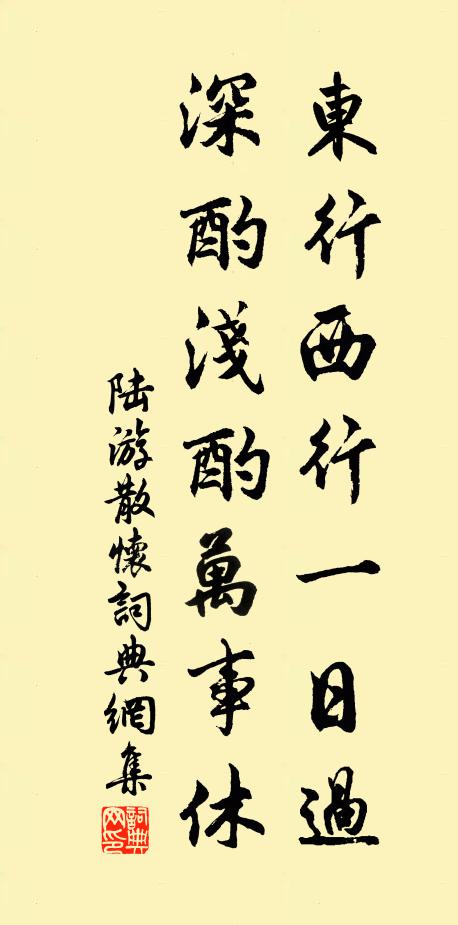 東行西行一日過
深酌淺酌萬事休
陆游散懷詞典網集
詞典網印